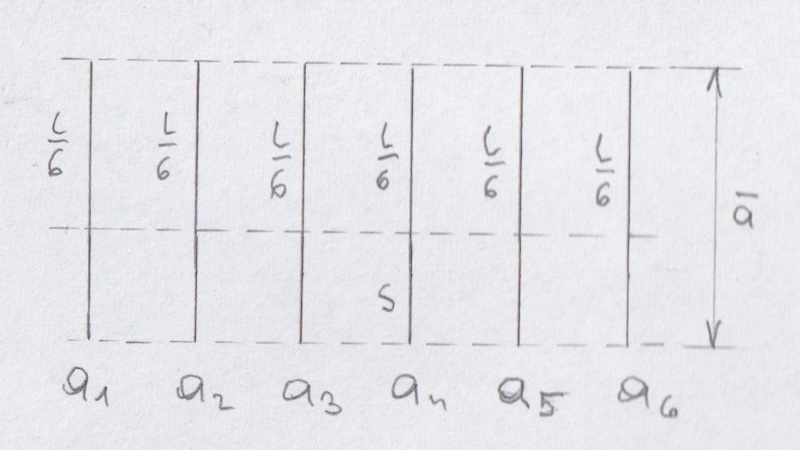 L/6 L/6 L/6 L/6 L/6 L/6
ā
S
a₁ a₂ a₃ a₄ a₅ a₆